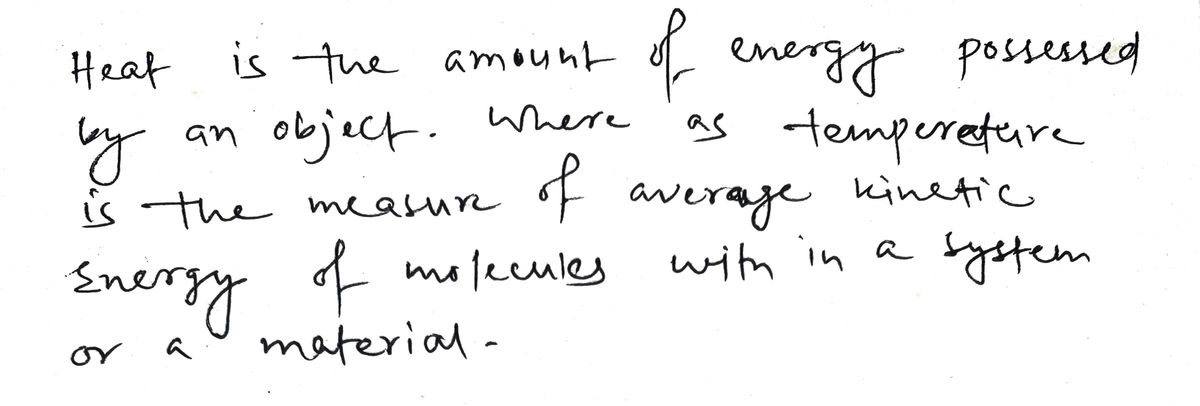 Heat is the amount of energy possessed
by an object. Where as temperature
is the measure of average kinetic
Energy of molecules with in a system
or a material.